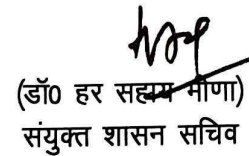 (डॉ0 हर सहाय मीणा)
संयुक्त शासन सचिव